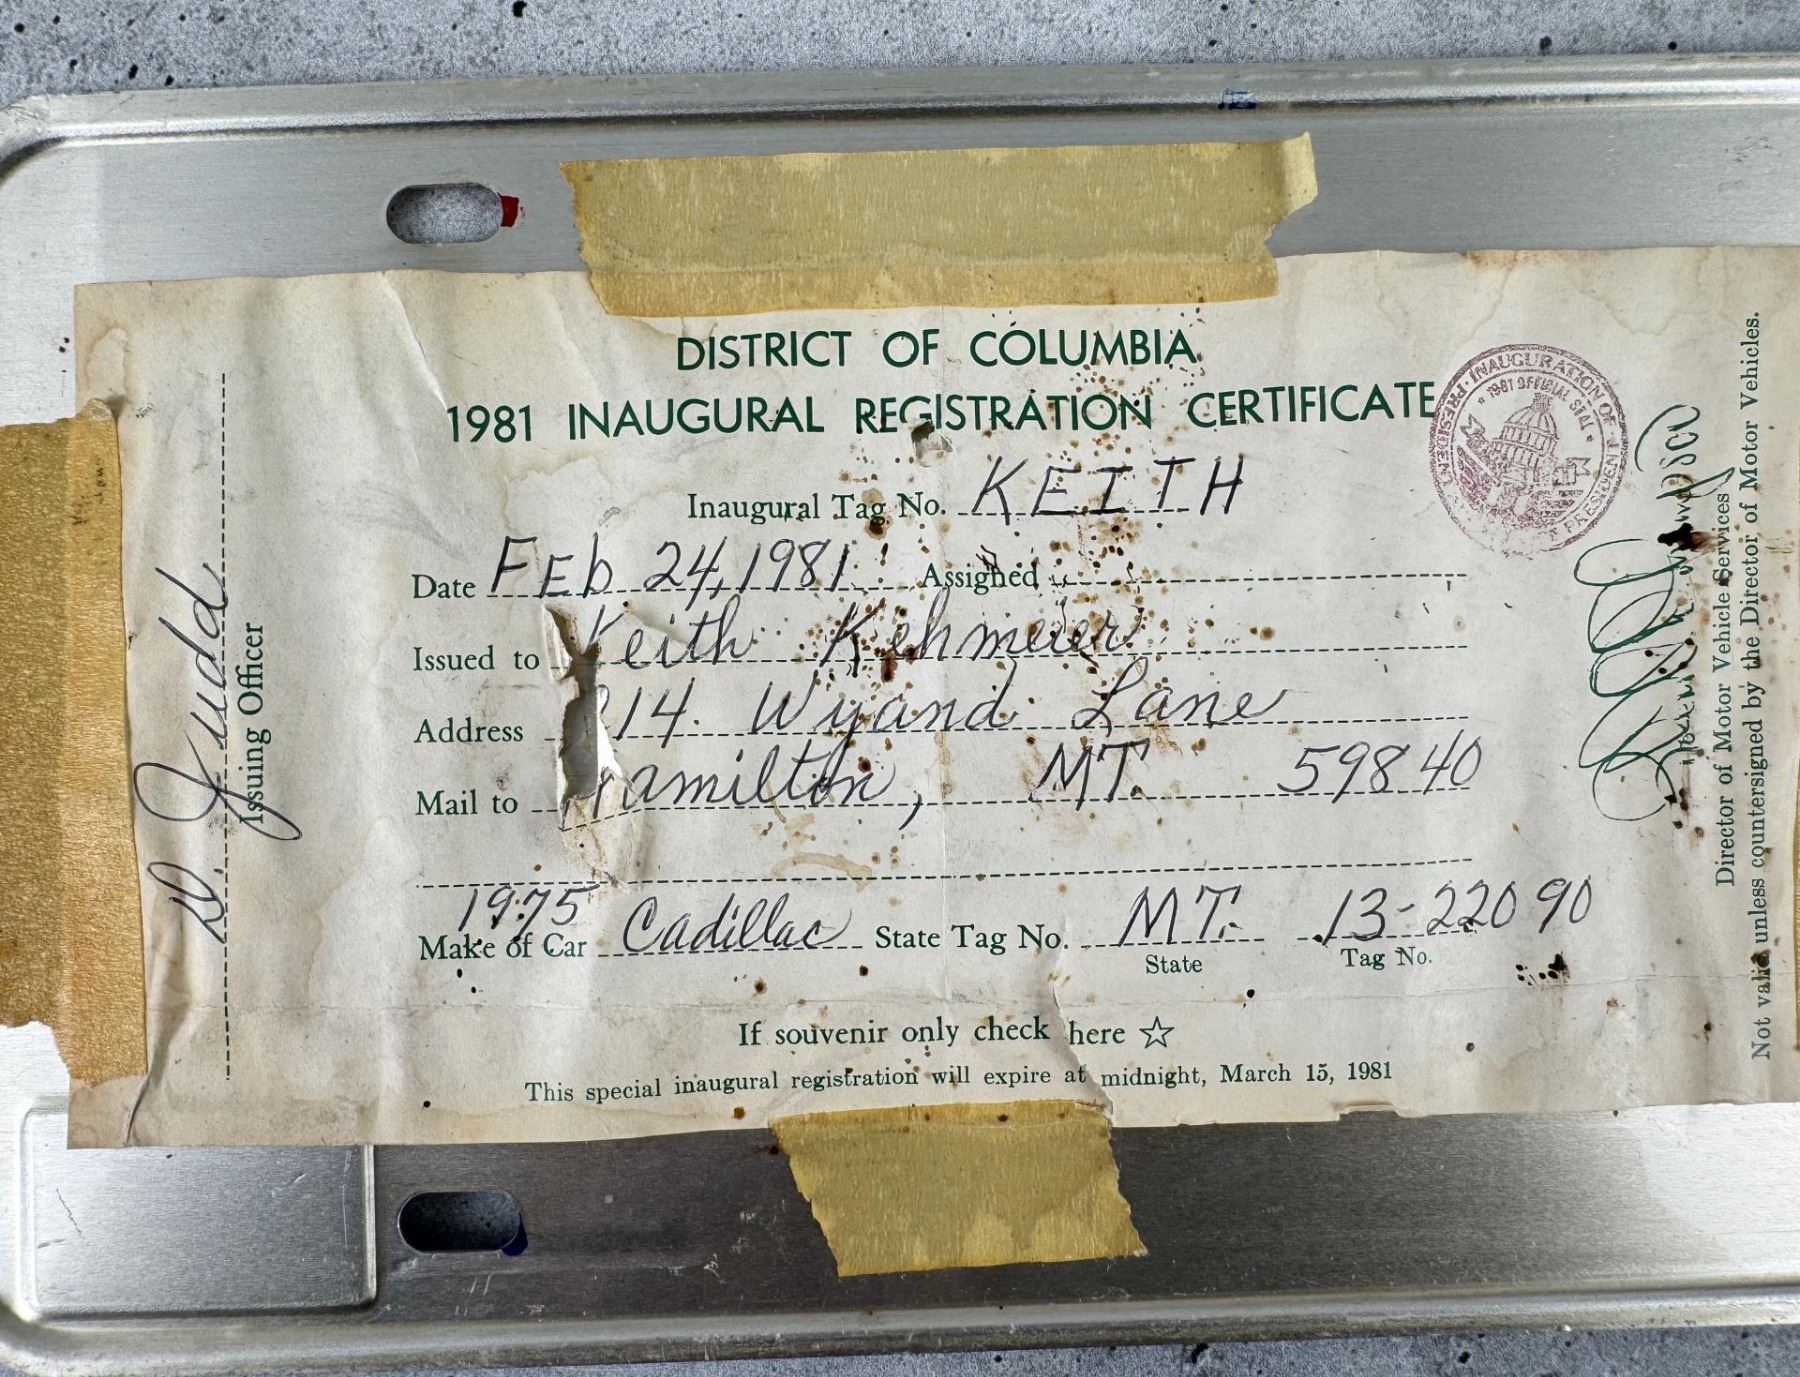 DISTRICT OF COLUMBIA
1981 INAUGURAL REGISTRATION CERTIFICATE
Inaugural Tag No. KEITH
Date Feb 24, 1981 Assigned
Issued to Keith Kehmeier
Address 14 Wyand Lane
Mail to Hamilton, MT. 59840
1975
Make of Car Cadillac State Tag No. MT. 13-22090
State Tag No.
If souvenir only check here ☆
This special inaugural registration will expire at midnight, March 15, 1981
D. Judd
Issuing Officer
INAUGURATION OF PRESIDENT
1981 OFFICIAL SEAL
Director of Motor Vehicle Services
Not valid unless countersigned by the Director of Motor Vehicles.